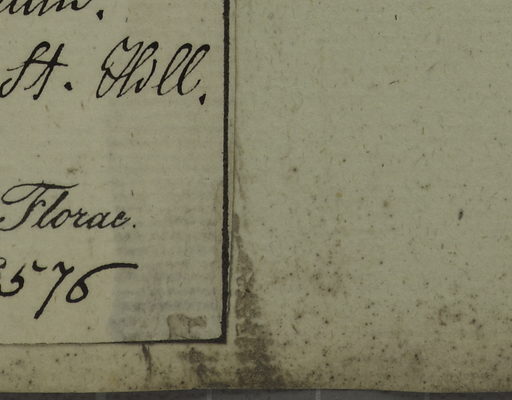 St. Hill.
Florae.
576